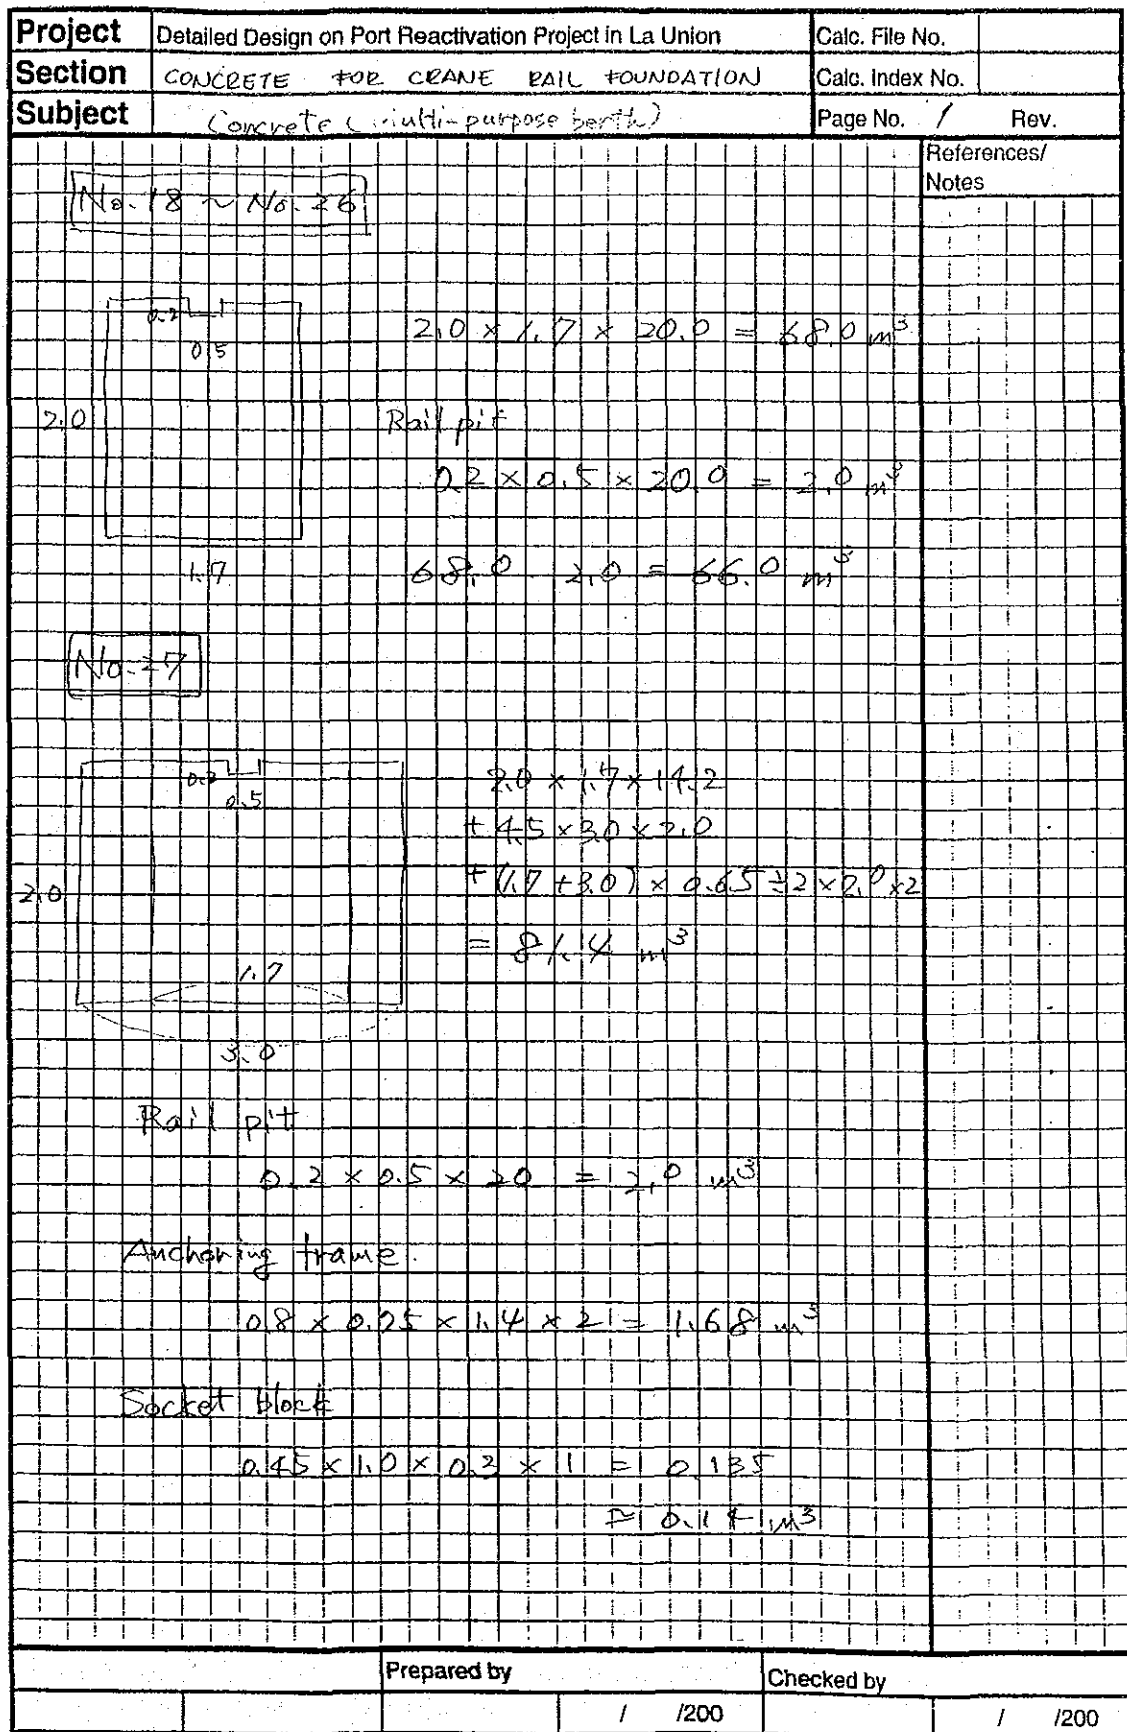 Project Detailed Design on Port Reactivation Project in La Union Calc. File No.
Section CONCRETE FOR CRANE RAIL FOUNDATION Calc. Index No.
Subject Concrete (multi-purpose berth) Page No. 1 Rev.
References/
Notes
No. 18 ~ No. 26
0.2
0.5
2.0 × 1.7 × 20.0 = 68.0 m³
2.0
Rail pit
0.2 × 0.5 × 20.0 = 2.0 m³
1.7
68.0 2.0 = 66.0 m³
No. 27
0.2
0.5
2.0 × 1.7 × 14.2
+ 4.5 × 3.0 × 2.0
+ (1.7 + 3.0) × 0.65 ÷ 2 × 2.0 × 2
2.0
= 81.4 m³
1.7
3.0
Rail pit
0.2 × 0.5 × 20 = 2.0 m³
Anchoring frame.
0.8 × 0.75 × 1.4 × 2 = 1.68 m³
Socket block
0.45 × 1.0 × 0.3 × 1 = 0.135
≒ 0.14 m³
Prepared by Checked by
/ /200 / /200